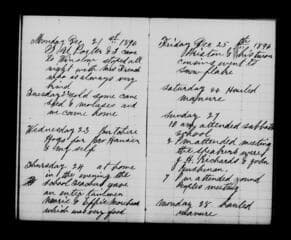 Monday Dec 21st 1896
to Winslow stoped all
night with Mrs French
who as always very
kind
Tuesday 22 sold some cane
seed & molases and
we came home
Wednesday 23 put
Hogs for
& my self
Thursday 24 at home
in the evening the
school teacher gave
an entertainment
& Effie
which was very good
Friday Dec 25th 1896
cousins went to
Snow flake
Saturday 26 Hauled
manure
Sunday 27
10 am attended sabbath
school
2 PM attended meeting
the speakers were
J. H. Richards & John
Bushman.
7 PM attended young
peoples meeting
Monday 28 hauled
manure